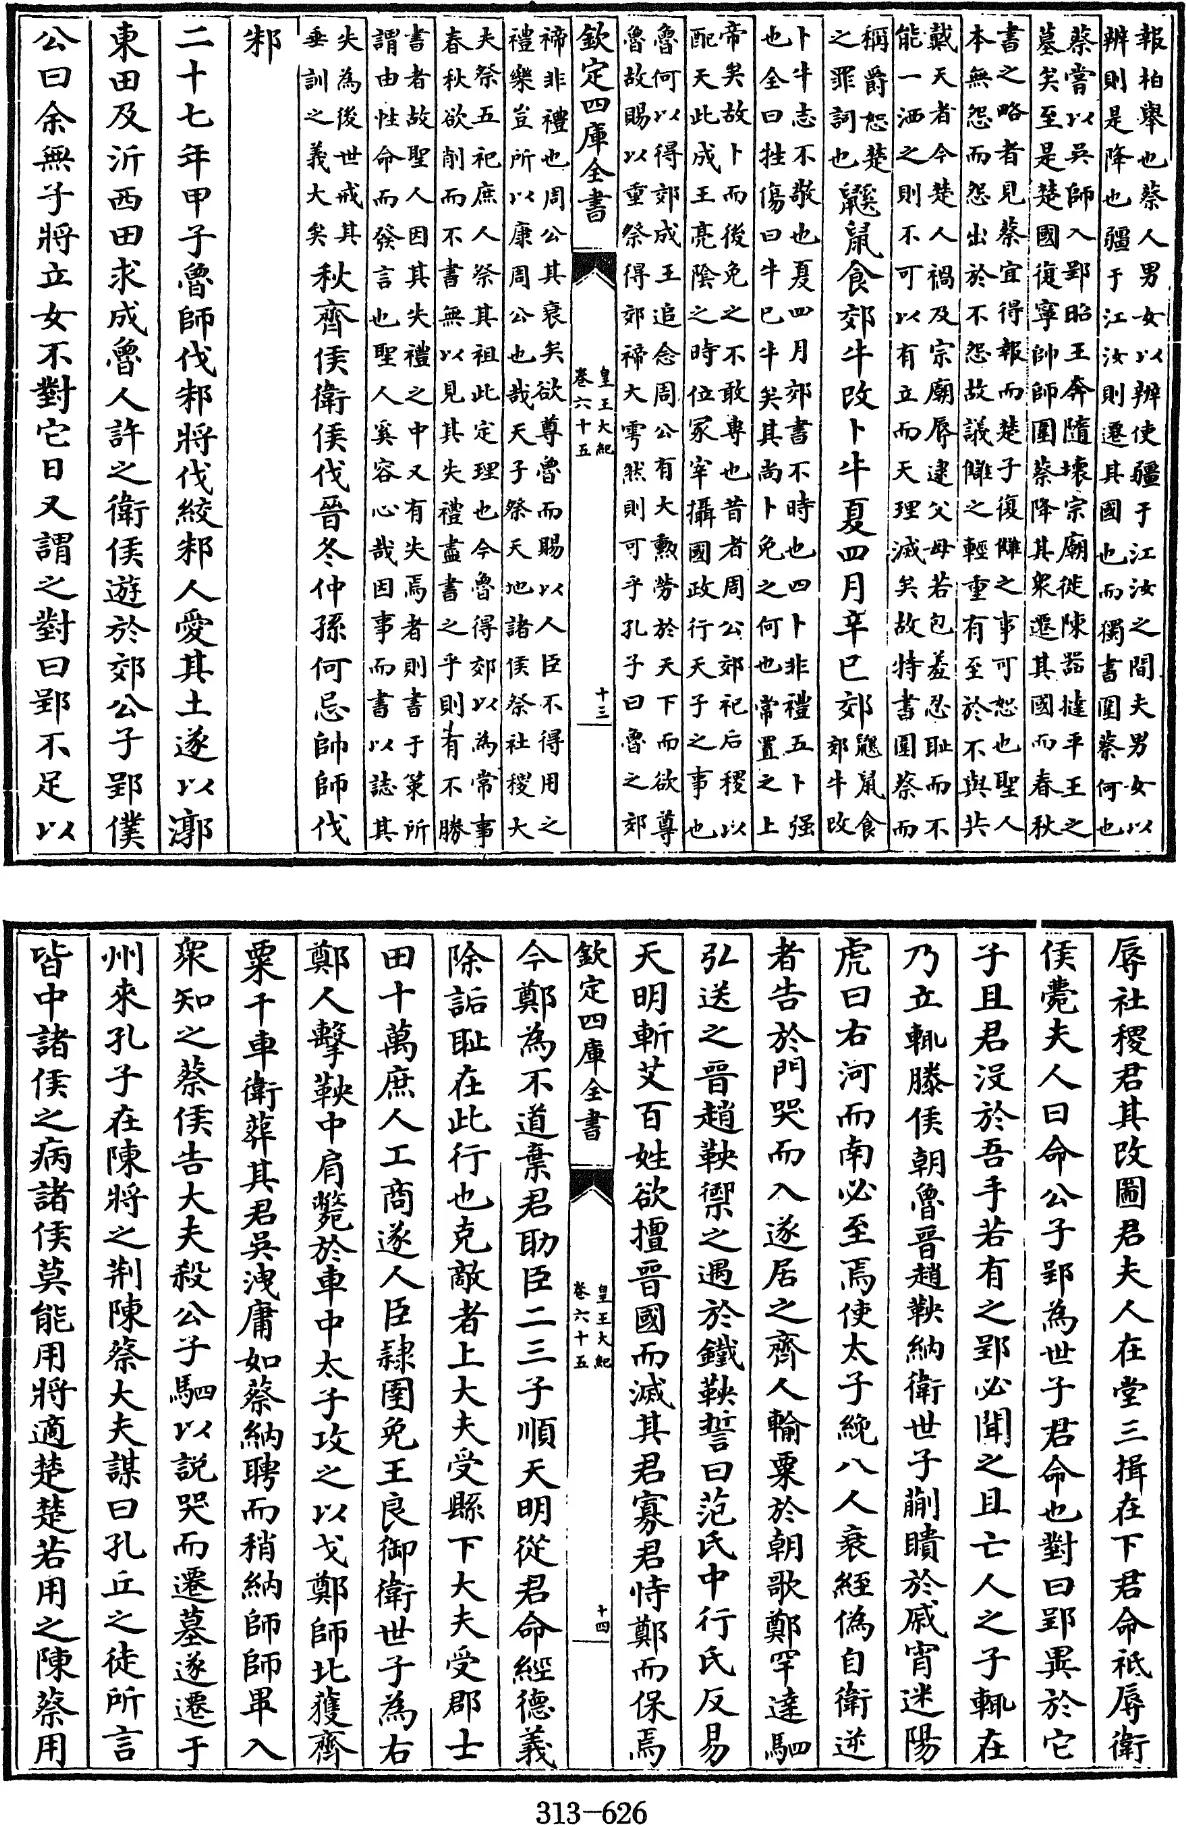 報柏舉也蔡人男女以辨使疆于江汝之間夫男女以
辨則是降也疆于江汝則遷其國也而獨書圍蔡何也
蔡嘗以吳師入郢昭王奔隨壞宗廟徙陳器撻平王之
墓矣至是楚國復寧帥師圍蔡降其衆遷其國而春秋
書之略者見蔡宜得報而楚子復讎之事可恕也聖人
本無怨而怨出於不怨故議讎之輕重有至於不與共
戴天者今楚人禍及宗廟辱逮父母若包羞忍耻而不
能一洒之則不可以有立而天理滅矣故特書圍蔡而
稱爵恕楚
之罪詞也
鼷鼠食郊牛改卜牛夏四月辛巳郊
鼷鼠食
郊牛改
卜牛志不敬也夏四月郊書不時也四卜非禮五卜强
也全曰牷傷曰牛巳牛矣其尚卜免之何也常置之上
帝矣故卜而後免之不敢專也昔者周公郊祀后稷以
配天此成王亮陰之時位冢宰攝國政行天子之事也
魯何以得郊成王追念周公有大勲勞於天下而欲尊
魯故賜以重祭得郊禘大雩然則可乎孔子曰魯之郊
欽定四庫全書
皇王大紀
卷六十五
十三
禘非禮也周公其衰矣欲尊魯而賜以人臣不得用之
禮樂豈所以康周公也哉天子祭天地諸侯祭社稷大
夫祭五祀庶人祭其祖此定理也今魯得郊以為常事
春秋欲削而不書無以見其失禮盡書之乎則有不勝
書者故聖人因其失禮之中又有失焉者則書于策所
謂由性命而發言也聖人奚容心哉因事而書以誌其
失為後世戒其
垂訓之義大矣
秋齊侯衛侯伐晉冬仲孫何忌帥師伐
邾
二十七年甲子魯師伐邾將伐絞邾人愛其土遂以漷
東田及沂西田求成魯人許之衛侯遊於郊公子郢僕
公曰余無子將立女不對它日又謂之對曰郢不足以
辱社稷君其改圖君夫人在堂三揖在下君命祇辱衛
侯薨夫人曰命公子郢為世子君命也對曰郢異於它
子且君沒於吾手若有之郢必聞之且亡人之子輒在
乃立輒滕侯朝魯晉趙鞅納衛世子蒯聵於戚宵迷陽
虎曰右河而南必至焉使太子絻八人衰絰偽自衛逆
者告於門哭而入遂居之齊人輸粟於朝歌鄭罕達駟
弘送之晉趙鞅禦之遇於鐵鞅誓曰范氏中行氏反易
天明斬艾百姓欲擅晉國而滅其君寡君恃鄭而保焉
欽定四庫全書
皇王大紀
卷六十五
十四
今鄭為不道棄君助臣二三子順天明從君命經德義
除詬耻在此行也克敵者上大夫受縣下大夫受郡士
田十萬庶人工商遂人臣隷圉免王良御衛世子為右
鄭人擊鞅中肩斃於車中太子攻之以戈鄭師北獲齊
粟千車衛葬其君吳洩庸如蔡納聘而稍納師師畢入
衆知之蔡侯告大夫殺公子駟以說哭而遷墓遂遷于
州來孔子在陳將之荆陳蔡大夫謀曰孔丘之徒所言
皆中諸侯之病諸侯莫能用將適楚楚若用之陳蔡用
313-626